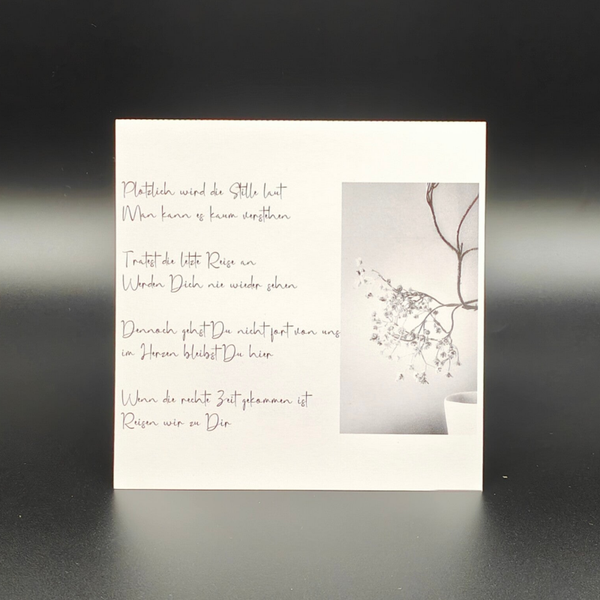 Plötzlich wird die Stille laut
Man kann es kaum verstehen
Tratest die letzte Reise an
Werden Dich nie wieder sehen
Dennoch gehst Du nicht fort von uns
im Herzen bleibst Du hier
Wenn die rechte Zeit gekommen ist
Reisen wir zu Dir